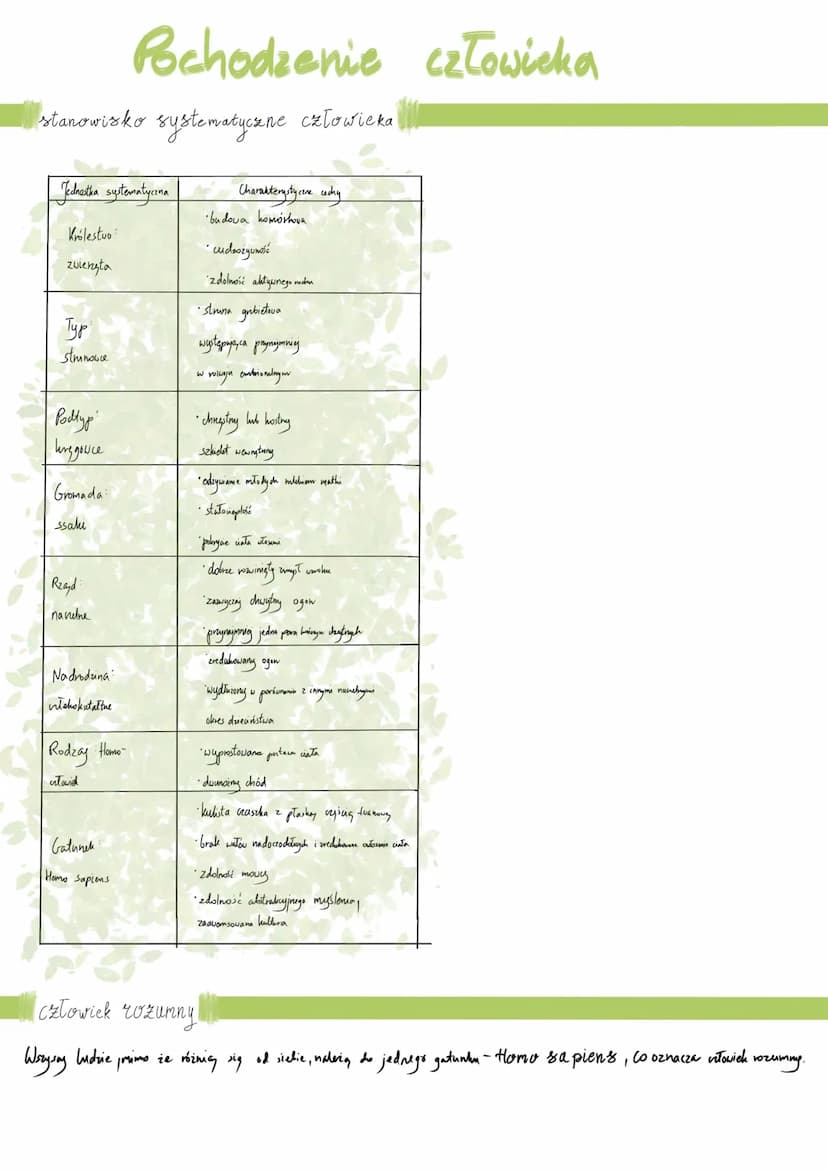 Pochodzenie człowieka
stanowisko systematyczne człowieka
Jednostka systematyczna
Charakterystyczne cechy
Królestwo:
zwierzęta
· budowa komórkowa
· cudzożywność
· zdolność aktywnego ruchu
Typ:
strunowce
· struna grzbietowa
występująca przynajmniej
w rozwoju embrionalnym
Podtyp:
kręgowce
· chrzęstny lub kostny
szkielet wewnętrzny
Gromada:
ssaki
· odżywianie młodych mlekiem matki
· stałocieplność
· pokrycie ciała włosami
Rząd:
naczelne
· dobrze rozwinięty zmysł wzroku
· zazwyczaj chwytny ogon
· przynajmniej jedna para kończyn chwytnych
Nadrodzina:
człekokształtne
· zredukowany ogon
· wydłużony w porównaniu z innymi naczelnymi
okres dzieciństwa
Rodzaj Homo-
człowiek
· wyprostowana postawa ciała
· dwunożny chód
Gatunek:
Homo sapiens
· kulista czaszka z płaską częścią twarzową
· brak wałów nadoczodołowych i zredukowane owłosienie ciała
· zdolność mowy
· zdolność abstrakcyjnego myślenia,
zaawansowana kultura
człowiek rozumny
Wszyscy ludzie, mimo że różnią się od siebie, należą do jednego gatunku - Homo sapiens, co oznacza człowiek rozumny.